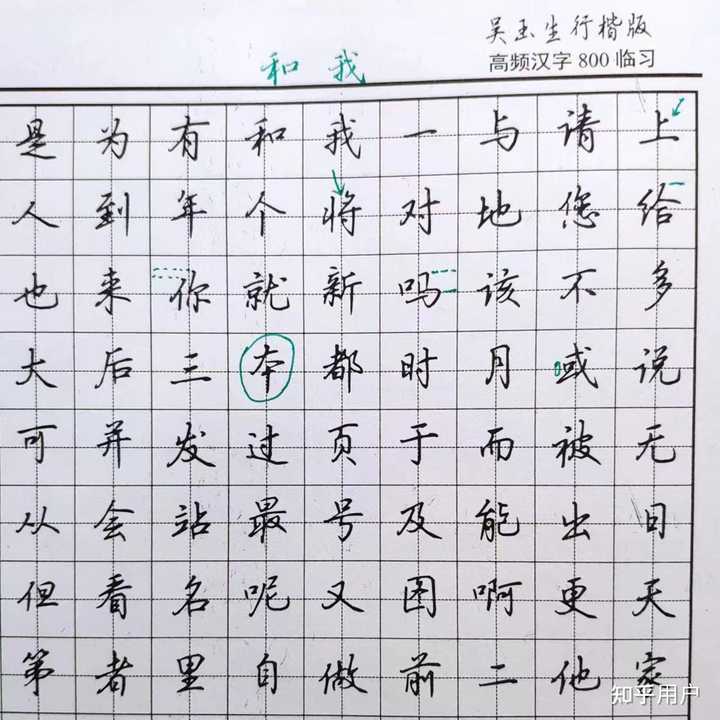 吴玉生行楷版
高频汉字800临习
和我
是为有和我一与请上
人到年个将对地您给
也来你就新吗该不多
大后三本都时月或说
可并发过页于而被无
从会站最号及能出日
但看名呢又图啊更天
第者里自做前二他家
知乎用户